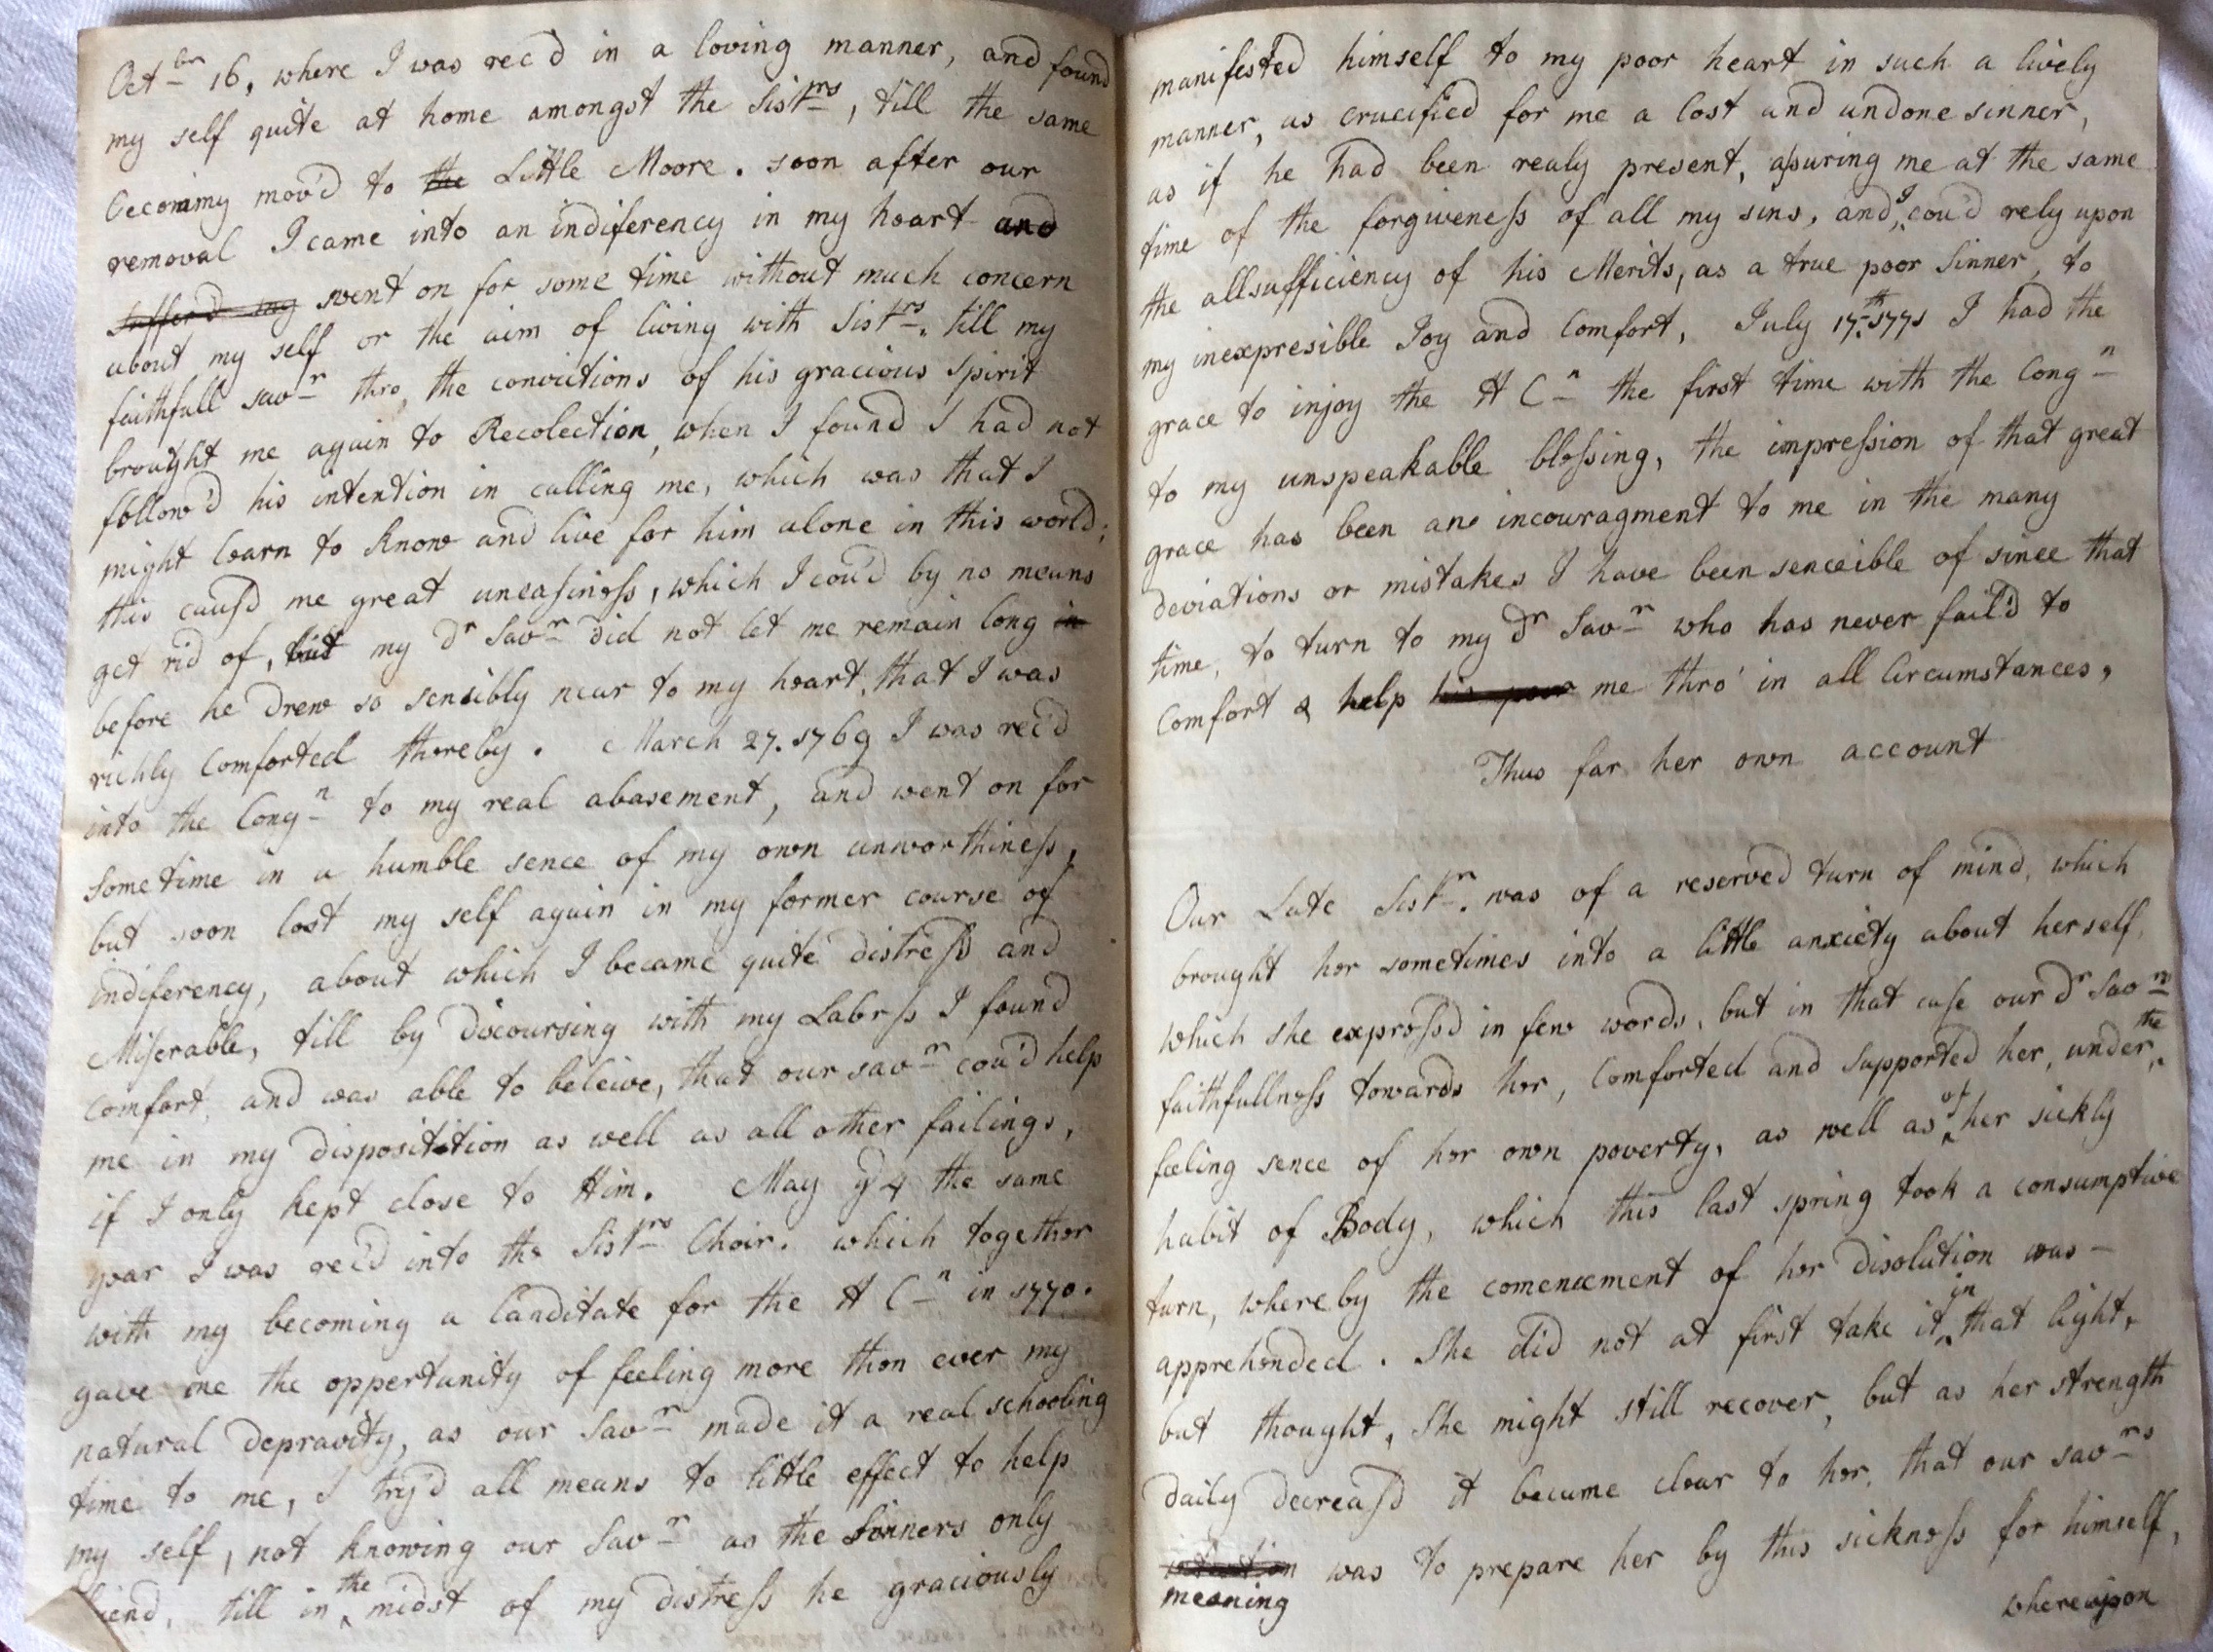 Octbr 16, where I was rec'd in a loving manner, and found
my self quite at home amongst the Sistrs, till the same
Oeconimy mov'd to the Little Moore. soon after our
removal I came into an indiferency in my heart and
suffer'd my went on for some time without much concern
about my self or the aim of living with Sistrs. till my
faithfull Savr thro the convictions of his gracious Spirit
brought me again to Recolection, when I found I had not
follow'd his intention in calling me, which was that I
might learn to know and live for him alone in this world;
this caus'd me great uneasiness, which I cou'd by no means
get rid of, but my Dr Savr did not let me remain long in
before he drew so sensibly near to my heart, that I was
richly Comforted thereby. March 27. 1769 I was rec'd
into the Congn to my real abasement, and went on for
some time in a humble sence of my own unworthiness,
but soon lost my self again in my former course of
indiferency, about which I became quite distress'd and
Miserable, till by discoursing with my Labrss I found
Comfort, and was able to beleive, that our Savr cou'd help
me in my disposition as well as all other failings,
if I only kept close to Him. May ye 4 the same
year I was rec'd into the Sistrs Choir. which together
with my becoming a Canditate for the H Cn in 1770.
gave me the oppertunity of feeling more then ever my
natural depravity, as our Savr made it a real schooling
time to me, I try'd all means to little effect to help
my self, not knowing our Savr as the Sinners only
friend, till in the midst of my distress he graciously
manifested himself to my poor heart in such a lively
manner, as crucified for me a lost and undone sinner,
as if he had been realy present, assuring me at the same
time of the forgiveness of all my sins, and I cou'd rely upon
the allsufficiency of his Merits, as a true poor Sinner, to
my inexpresible Joy and Comfort, July 17th 1771 I had the
grace to injoy the H Cn the first time with the Congn
to my unspeakable blessing, the impression of that great
grace has been an incouragment to me in the many
deviations or mistakes I have been senceible of since that
time, to turn to my Dr Savr who has never fail'd to
Comfort & help his poor me thro' in all Circumstances,
Thus far her own account
Our Late Sistr. was of a reserved turn of mind, which
brought her sometimes into a little anxiety about herself,
which she express'd in few words, but in that case our Dr Savrs
faithfullness towards her, Comforted and Supported her, under the
feeling sence of her own poverty, as well as of her sickly
habit of Body, which this last spring took a consumptive
turn, whereby the comencement of her disolution was –
apprehended. She did not at first take it in that light,
but thought, she might still recover, but as her strength
daily decreas'd it became clear to her, that our Savrs
intention was to prepare her by this sickness for himself,
meaning
whereupon